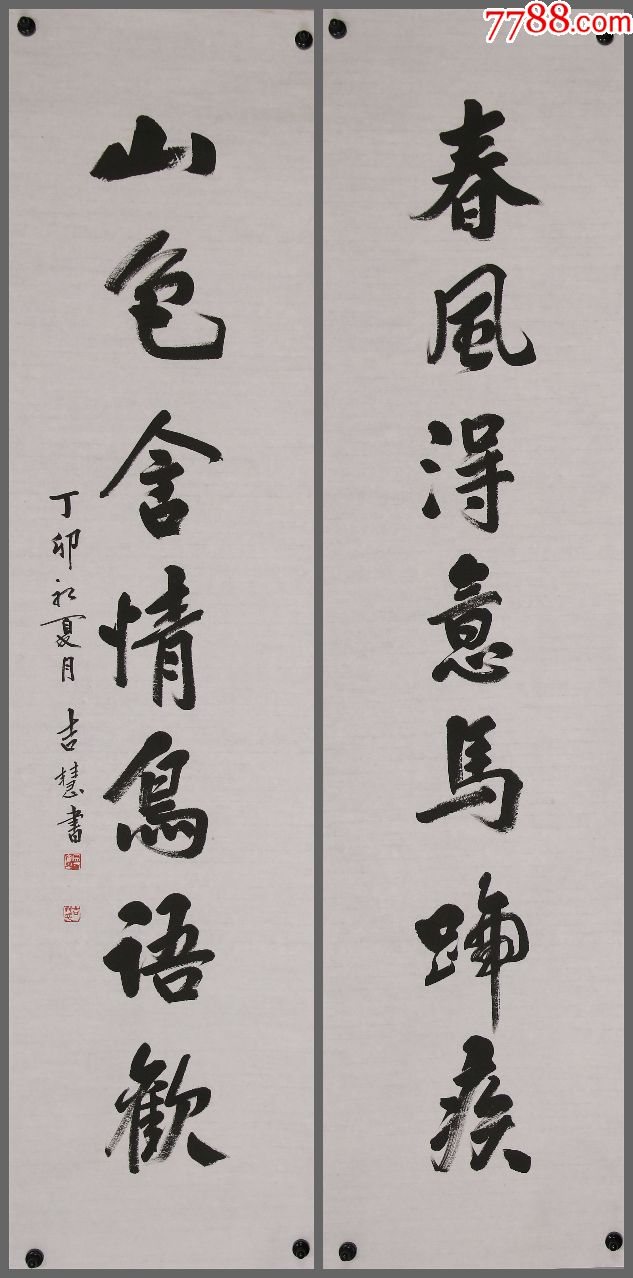 7788.com
春風得意馬蹄疾
山色含情鳥語歡
丁卯初夏月 吉慧書